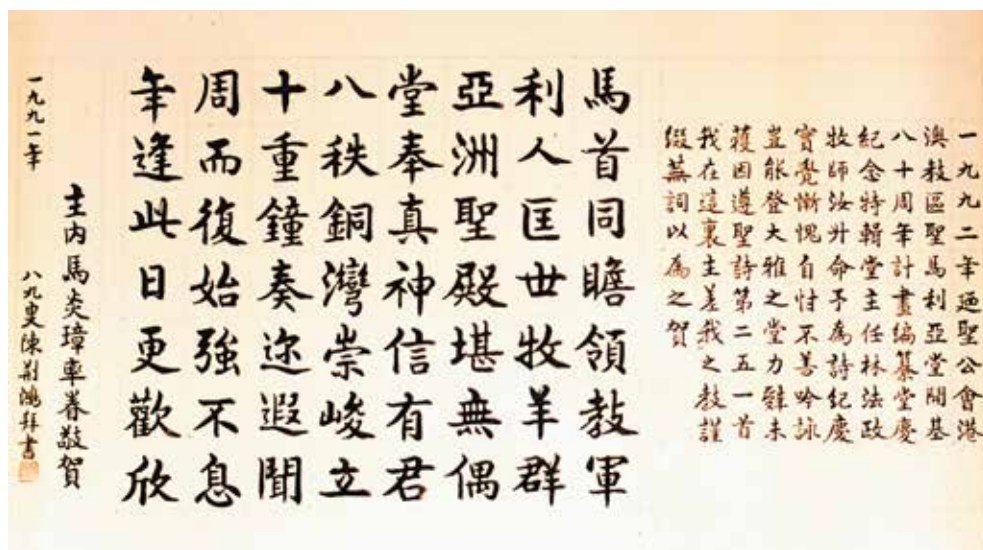 一九九二年廼聖公會港
澳教區聖馬利亞堂開基
八十周年計畫編纂堂慶
紀念特輯堂主任林法政
牧師汝升命予為詩紀慶
實覺慚愧自忖不善吟詠
豈能登大雅之堂力辭未
獲因遵聖詩第二五一首
我在這裏主差我之教謹
綴蕪詞以為之賀
馬首同瞻領教軍
利人匡世牧羊群
亞洲聖殿堪無偶
堂奉真神信有君
八秩銅灣崇峻立
十重鐘奏迩遐聞
周而復始強不息
年逢此日更歡欣
主內馬炎璋率眷敬賀
一九九一年
八九叟陳荊鴻拜書